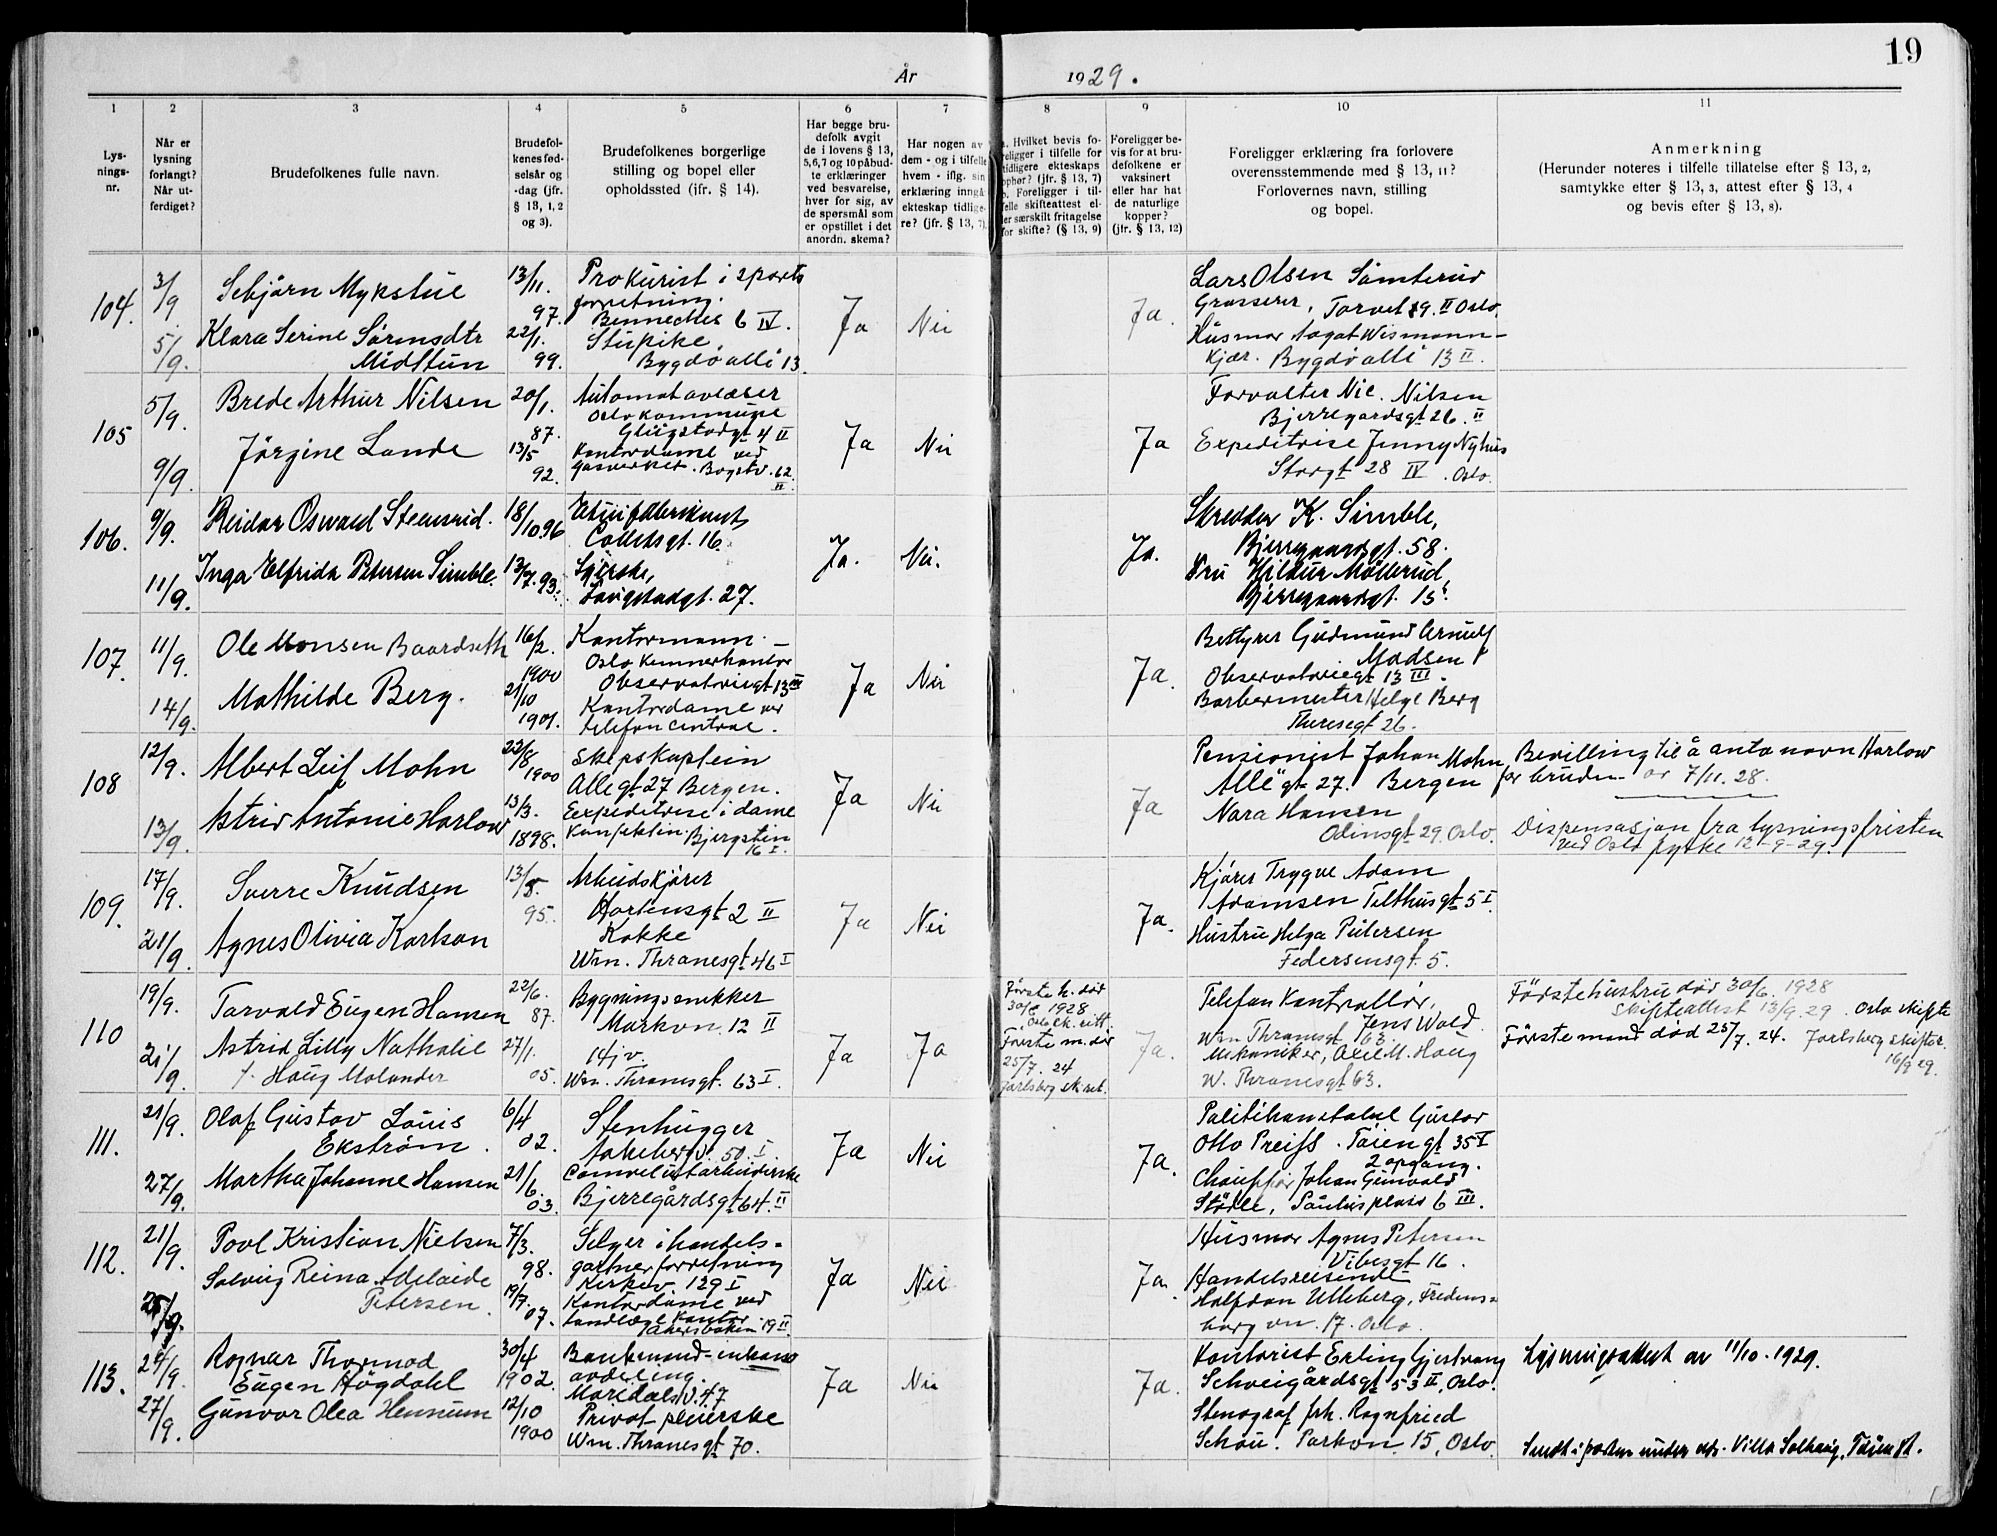 19
År 1929.
1 2 3 4 5 6 7 8 9 10 11
Lys-
nings-
nr.
Når er
lysning
forlangt?
Når ut-
ferdiget?
Brudefolkenes fulle navn.
Brudefol-
kenes fød-
selsår og
-dag (jfr.
§ 13, 1, 2
og 3).
Brudefolkenes borgerlige
stilling og bopel eller
opholdssted (jfr. § 14).
Har begge bru-
defolk avgit
de i lovens § 13,
5,6,7 og 10 påbud-
te erklæringer
ved besvarelse,
hver for sig, av
de spørsmål som
er opstillet i det
anordn. skema?
Har nogen av
dem - og i tilfelle
hvem - iflg. sin
erklæring inngå
ekteskap tidlige-
re? (jfr. § 13, 7)
a. Hvilket bevis fo-
religger i tilfelle for
tidligere ekteskaps
ophør? (jfr. § 13, 7)
b. Foreligger i til-
felle skifteattest el-
ler særskilt fritagelse
for skifte? (§ 13, 9)
Foreligger be-
vis for at bru-
defolkene er
vaksinert
eller har hat
de naturlige
kopper?
(jfr. § 13, 12)
Foreligger erklæring fra forlovere
overensstemmende med § 13, 11?
Forlovernes navn, stilling
og bopel.
Anmerkning
(Herunder noteres i tilfelle tillatelse efter § 13, 2,
samtykke efter § 13, 3, attest efter § 13, 4
og bevis efter § 13, 8).
104. 3/9 5/9.
Sebjørn Mykstue
Klara Serine Sørmsdtr
Midttun
13/11. 97.
22/1. 99.
Prokurist i sports
forretning.
Benneches 6 IV.
Stupike,
Bygdø allé 13.
Ja Nei Ja.
Lars Olsen Sämterud
Grosserer, Torvet 9. II Oslo.
Husmor Aagot Wismann-
Kjær. Bygdø allé 13 II.
105 5/9. 9/9.
Brede Arthur Nilsen
Jørgine Lande
20/1. 87.
13/5 92.
Automatavleser
Oslo kommune
Glugstadgt 4 II
Kontordame ved
Gasverket. Bogstv. 62.
II
Ja Nei Ja
Forvalter Nic. Nilsen
Bjerregaardsgt 26. II
Expeditrise Jenny Nyhus
Storgt 28 IV. Oslo.
106. 9/9. 11/9.
Reidar Oswald Steensrud.
Inga Elfrida Petersen Simble.
18/10 96
13/7. 93.
Etuifabrikant
Colletsgt. 16.
Syerske,
27.
Ja. Nei. Ja.
Skredder K. Simble,
Bjerregaardsgt. 58.
Fru Hildur Møllerud,
Bjerregaardsgt. 15
107. 11/9. 14/9.
Ole Monsen Baardseth
Mathilde Berg.
16/2. 1900
21/10 1901.
Kontormann -
Oslo Kemnerkontor
Observatoriegt 13 III
Kontordame ved
telefon central.
Ja Nei Ja.
Bestyrer Gudmund Arnulf
Madsen
Observatoriegt 13 III.
Barbermester Helge Berg
Theresegt 26.
108 12/9. 13/9.
Albert Leif Mohn
Astrid Antonie Harlow
22/8 1900
13/3. 1898.
Skipskaptein
Allegt 27 Bergen.
Expeditrise i dame
Konfektion. Bjergstien
16 I.
Ja Nei Ja
Pensionist Johan Mohn
Allégt 27. Bergen
Nora Hansen
Odinsgt 29. Oslo.
Bevilling til å anta navn Harlow
for bruden av 7/11. 28.
Dispensasjon fra lysningsfristen
ved Oslo 12-9-29.
109. 17/9. 21/9.
Sverre Knudsen
Agnes Olivia Karlson
13/5. 95.
Arbeidskjører
Hortensgt 2 II
Kokke
Wm. Thranesgt 46 I
Ja Nei Ja.
Kjører Trygve Adam
Adamsen Telthusgt 5 I.
Hustru Helga Petersen
Pedersensgt. 5.
110 19/9. 21/9.
Torvald Eugen Hansen
Astrid Lilly Nathalie
f. Haug Molander
22/6. 87.
27/1. 05.
Bygningssnekker
Markvn. 12 II
Hjv.
Wm. Thranesgt. 63 I.
Ja Ja
Første h. død
30/6 1928
Oslo sk.rett
Første m. dør
25/7. 24
Jarlsberg sk.ret.
Ja.
Telefon Kontrollør,
Jens Wold
Wm Thranesgt 63.
Mekaniker, Axel M. Haug
W. Thranesgt 63.
Førstehustru død 30/6. 1928
skifteattest 13/9. 29. Oslo skifte
Første mand død 25/7. 24. Jarlsberg skifter.
16/9 29.
111. 21/9. 27/9.
Olaf Gustav Louis
Ekstrøm.
Martha Johanne Hansen
6/4 02.
21/6. 03.
Stenhugger
Aakebergv. 50. I.
Bjerregårdsgt 64. II
Ja Nei Ja.
Politikonstabel Gustav
Otto Preifs. Tøiengt 35 I
2 opgang.
Chauffør Johan Gunvald
Stølle, Paulus plass 6 III.
112. 21/9. 25/9.
Povl Kristian Nielsen
Solveig Reina Adelaide
Petersen.
7/3. 98.
19/7. 07.
Selger i handels-
gartnerforretning
Kirkev. 129 I
Kontordame ved
Landlæge kontor
Akersbakken 19 II
Ja Nei Ja.
Husmor Agnes Petersen
Vibesgt 16.
Handelsreisende
Halfdan Ulleberg, Fredens-
borg vn. 17. Oslo.
113. 24/9. 27/9.
Ragnar Thormod
Eugen Høgdahl
Gunvor Olea Hennum
30/4 1902.
12/10 1900
Bankmand-inkasso
avdeling.
Maridalsv. 47
Privat pleierske
Wm. Thranesgt 70.
Ja Nei Ja.
Kontorist Erling Gjestvang
Schweigårdsgt 53 II, Oslo.
Stenograf frk. Ragnfried
Schou. Parkvn. 15, Oslo.
Lysningsattest av 11/10. 1929.
Sendt i posten under adr. Villa Solhaug, Tøien st.